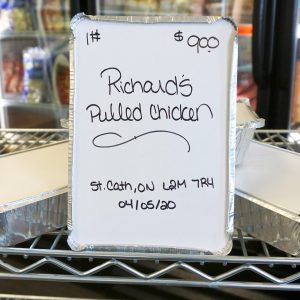 1# $9.00
Richard's
Pulled Chicken
St. Cath, ON L2M 7R4
04/05/20